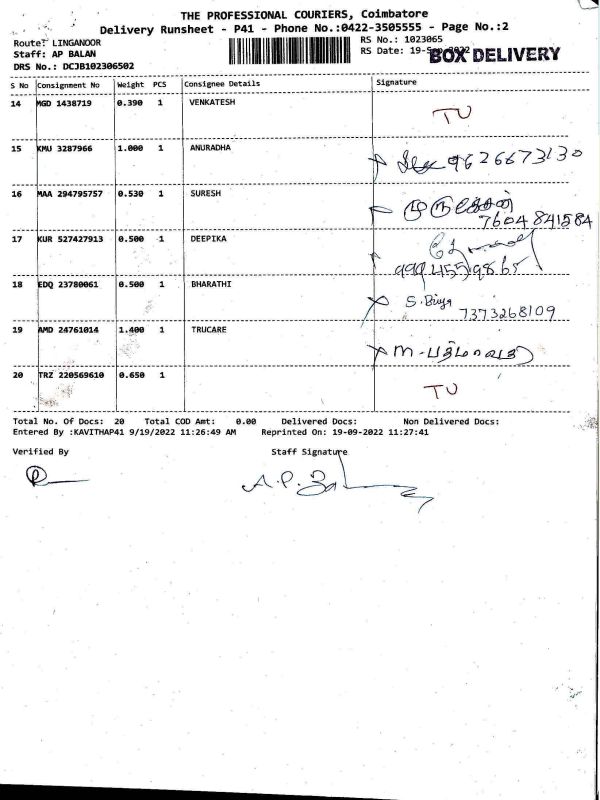 THE PROFESSIONAL COURIERS, Coimbatore
Delivery Runsheet - P41 - Phone No.:0422-3505555 - Page No.:2
Route: LINGANOOR
RS No.: 1023065
Staff: AP BALAN
RS Date: 19-Sep-2022
BOX DELIVERY
DRS No.: DCJB102306502
S No Consignment No Weight PCS Consignee Details Signature
14 MGD 1438719 0.390 1 VENKATESH TU
15 KMU 3287966 1.000 1 ANURADHA 9626673130
16 MAA 294795757 0.530 1 SURESH
7604841584
17 KUR 527427913 0.500 1 DEEPIKA
9994559865
18 EDQ 23780061 0.500 1 BHARATHI S. Divya
7373268109
19 AMD 24761014 1.400 1 TRUCARE
m. பத்மாவதி
20 TRZ 220569610 0.650 1 TU
Total No. Of Docs: 20 Total COD Amt: 0.00 Delivered Docs: Non Delivered Docs:
Entered By :KAVITHAP41 9/19/2022 11:26:49 AM Reprinted On: 19-09-2022 11:27:41
Verified By Staff Signature
A.P. Bal